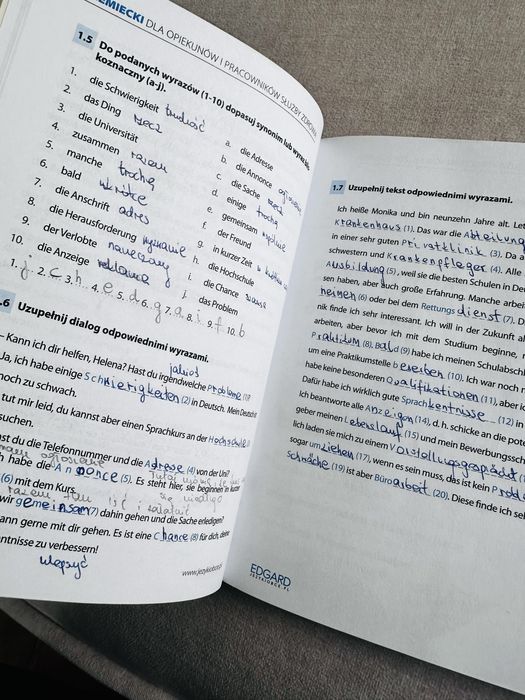 EMIECKI DLA OPIEKUNÓW I PRACOWNIKÓW SŁUŻBY ZDROW
1.5 Do podanych wyrazów (1-10) dopasuj synonim lub wyraz blis-
koznaczny (a-j).
1. die Schwierigkeit trudność
2. das Ding rzecz
3. die Universität
4. zusammen razem
5. manche trochę
6. bald wkrótce
7. die Anschrift adres
8. die Herausforderung wyzwanie
9. der Verlobte narzeczony
10. die Anzeige reklama
a. die Adresse
b. die Annonce ogłoszenie
c. die Sache rzecz
d. einige trochę
e. gemeinsam wspólnie
f. der Freund
g. in kurzer Zeit
h. die Hochschule
i. die Chance szansa
j. das Problem
1. j 2. c 3. h 4. e 5. d 6. g 7. a 8. i 9. f 10. b
.6 Uzupełnij dialog odpowiednimi wyrazami.
jakieś
– Kann ich dir helfen, Helena? Hast du irgendwelche Probleme (1)?
Ja, ich habe einige Schwierigkeiten (2) in Deutsch. Mein Deutsch
noch zu schwach.
tut mir leid, du kannst aber einen Sprachkurs an der Hochschule (3)
suchen.
st du die Telefonnummer und die Adresse (4) von der Uni?
h habe die Annonce (5). Es steht hier, sie beginnen in kurzer
(6) mit dem Kurs.
razem tam iść i załatwić
wir gemeinsam (7) dahin gehen und die Sache erledigen?
ann gerne mit dir gehen. Es ist eine Chance (8) für dich, deine
ntnisse zu verbessern!
ulepszyć
www.jezykiobce.pl
1.7 Uzupełnij tekst odpowiednimi wyrazami.
Ich heiße Monika und bin neunzehn Jahre alt. Let
Krankenhaus (1). Das war die Abteilung
in einer sehr guten Privatklinik (3). Da a
schwestern und Krankenpfleger (4). Alle
Ausbildung (5), weil sie die besten Schulen in Deu
sen haben, aber auch große Erfahrung. Manche arbeit
heimen (6) oder bei dem Rettungsdienst (7). D
nik finde ich sehr interessant. Ich will in der Zukunft al
arbeiten, aber bevor ich mit dem Studium beginne, m
Praktikum (8). Bald (9) habe ich meinen Schulabschlu
um eine Praktikumstelle bewerben (10). Ich war noch n
habe keine besonderen Qualifikationen (11), aber ic
Dafür habe ich wirklich gute Sprachkentnisse (12) in
Ich beantworte alle Anzeigen (14), d. h. schicke an die pote
geber meinen Lebenslauf (15) und mein Bewerbungssch
lich laden sie mich zu einem Vorstellungsgespräch (16)
sogar umziehen (17), wenn es sein muss, das ist kein Probl
Schwäche (19) ist aber Büroarbeit (20). Diese finde ich sel
EDGARD
JEZYKIOBCE.PL